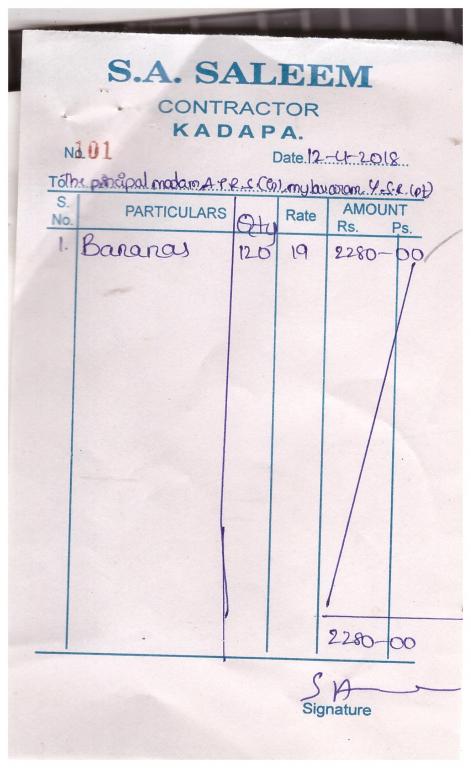 S.A. SALEEM
CONTRACTOR
KADAPA.
No. 101 Date. 12-4-2018
To The principal madam A.P.R.S (G), mylavaram. Y.S.R. (Dt)
S. No. PARTICULARS Qty Rate AMOUNT Rs. Ps.
1. Bananas 120 19 2280-00
2280-00
SA
Signature